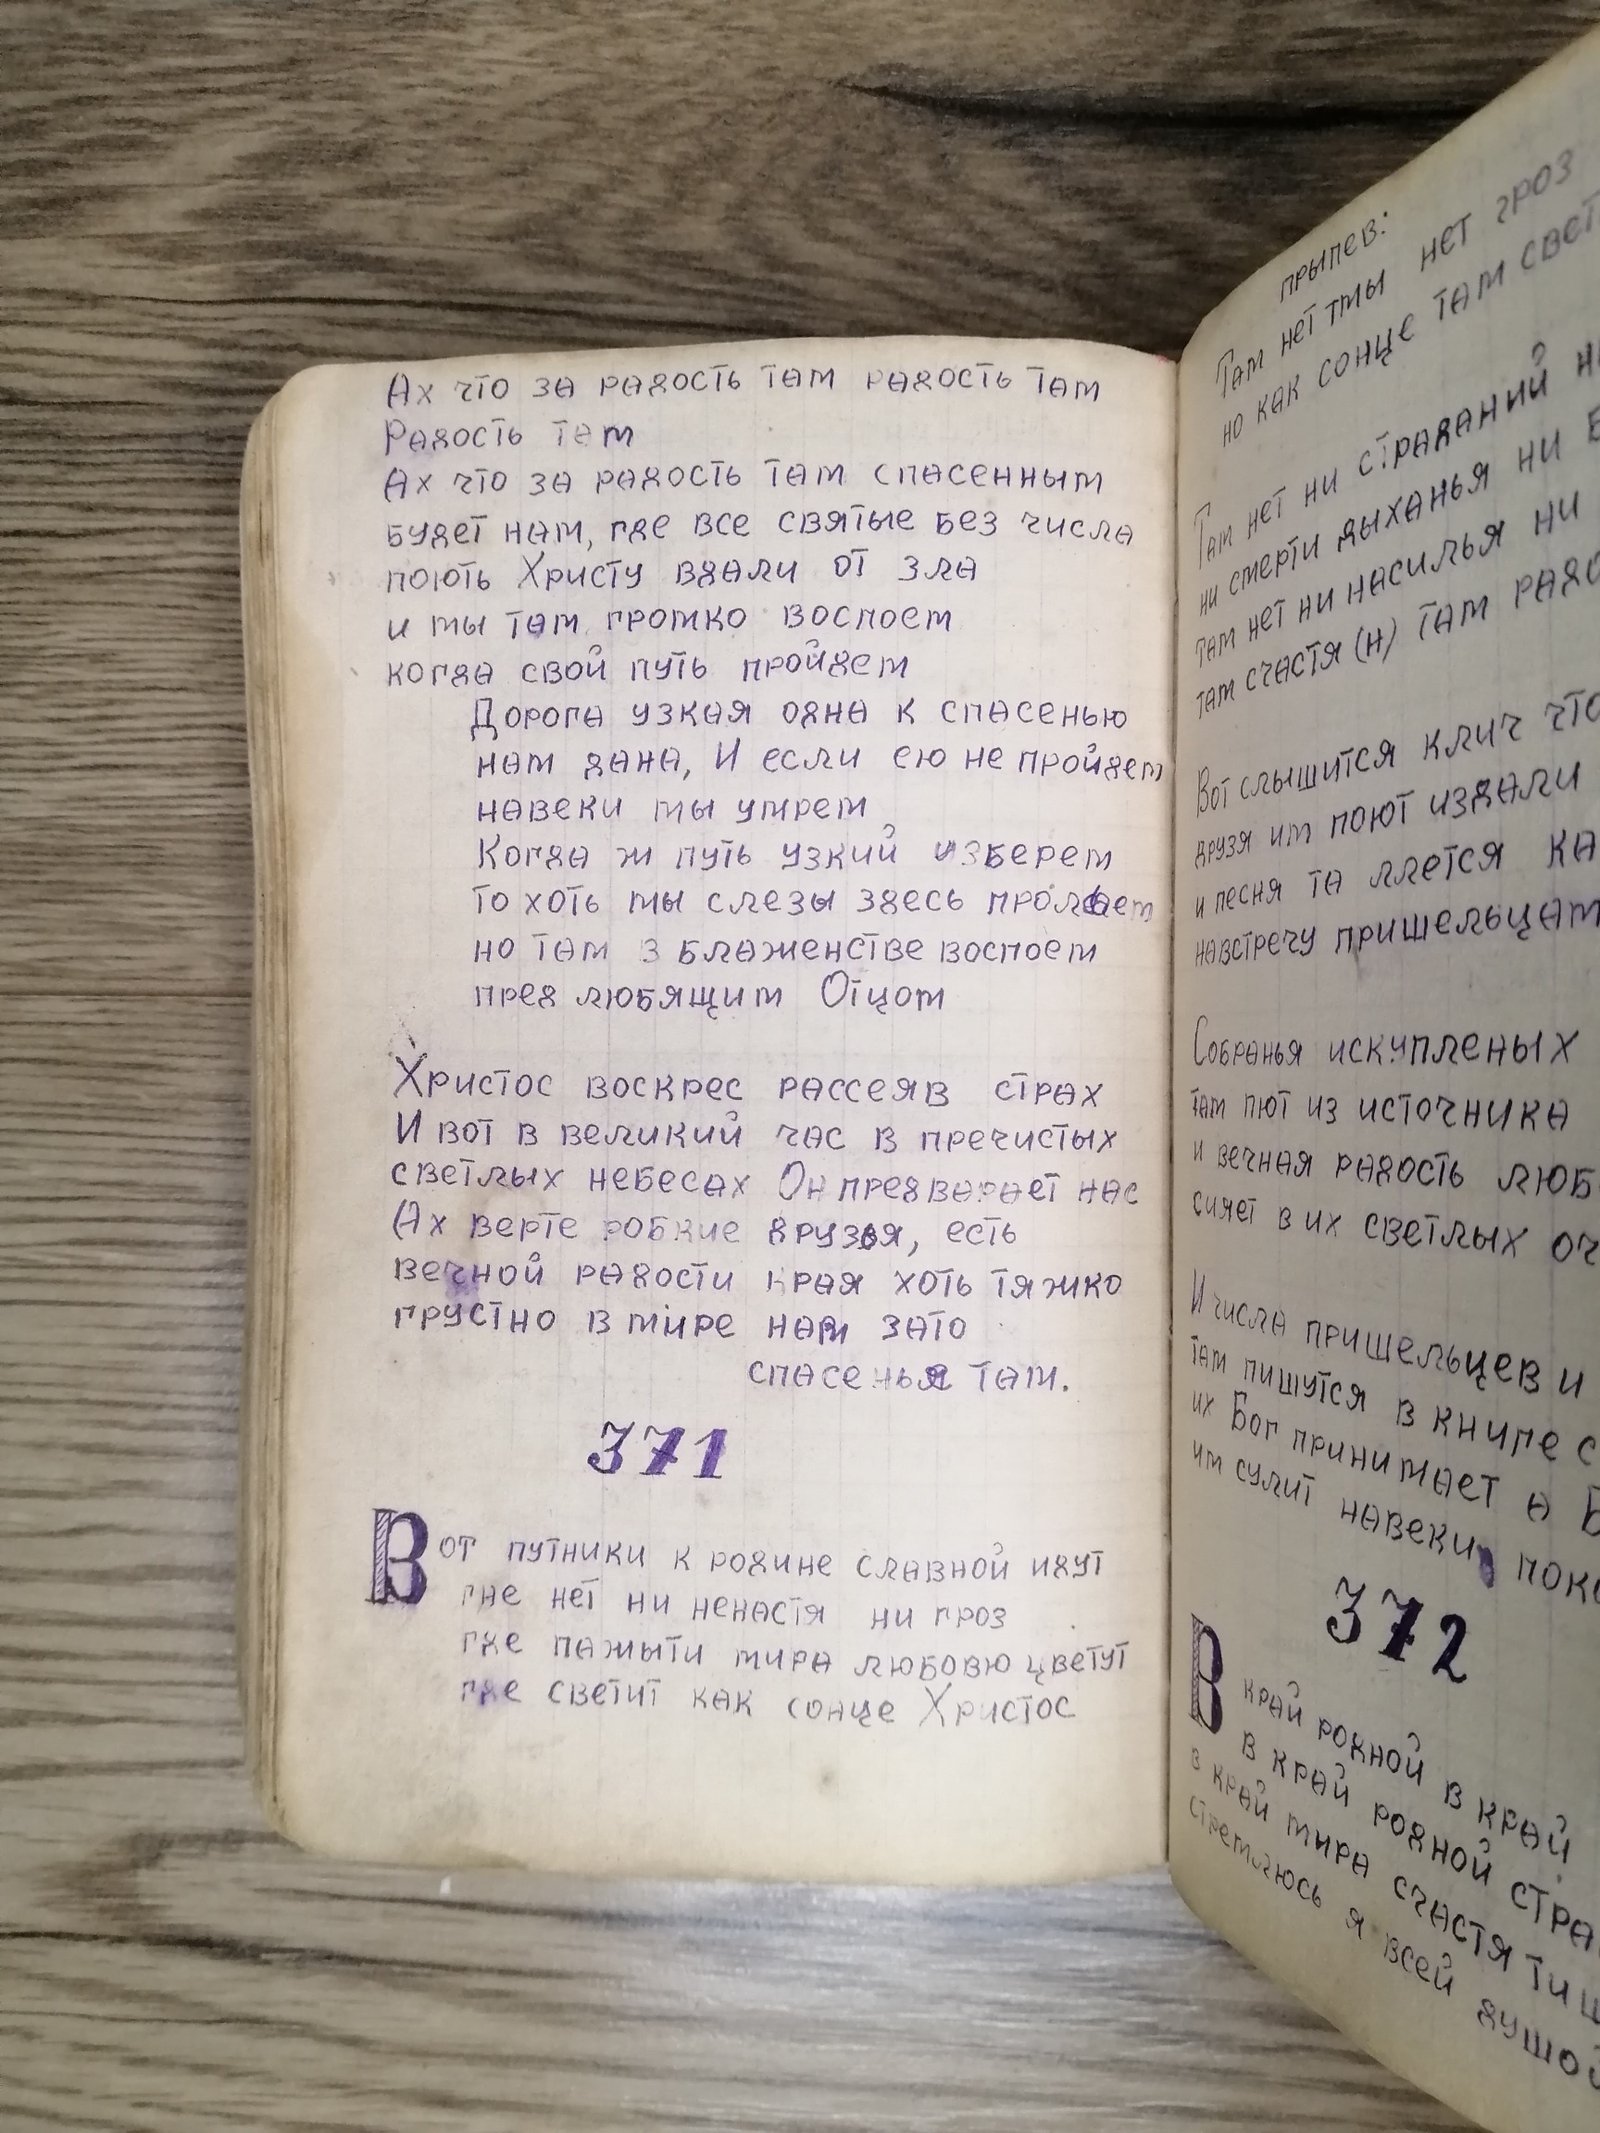 Ах что за радость там радость там
Радость там
Ах что за радость там спасенным
будет нам, где все святые без числа
поють Христу вдали от зла
и мы там громко воспоем
когда свой путь пройдем
Дорога узкая одна к спасенью
нам дана, И если ею не пройдем
навеки мы умрем
Когда ж путь узкий изберем
то хоть мы слезы здесь прольем
но там в блаженстве воспоем
пред любящим Отцом
Христос воскрес рассеяв страх
И вот в великий час в пречистых
светлых небесах Он предваряет нас
Ах верте робкие друзья, есть
вечной радости края хоть тяжко
грустно в мире нам зато
спасенья там.
371
Вот путники к родине славной идут
где нет ни ненастя ни гроз
где пажыти мира любовю цветут
где светит как сонце Христос
прыпев:
Там нет тмы нет гроз
но как сонце там
Там нет ни страданий
ни смерти дыханья ни
там нет ни насилья ни
там счастя (н) там
Вот слышится клич что
друзя им поют издали
и песня та ллется
навстречу пришельцам
Собранья искупленых
там пют из источника
и вечная радость
сияет в их светлых
И числа пришельцев и
там пишутся в книге
их Бог принимает а
им сулит навеки
372
В край родной в край
в край родной
в край мира счастя
стремлюсь я всей душой